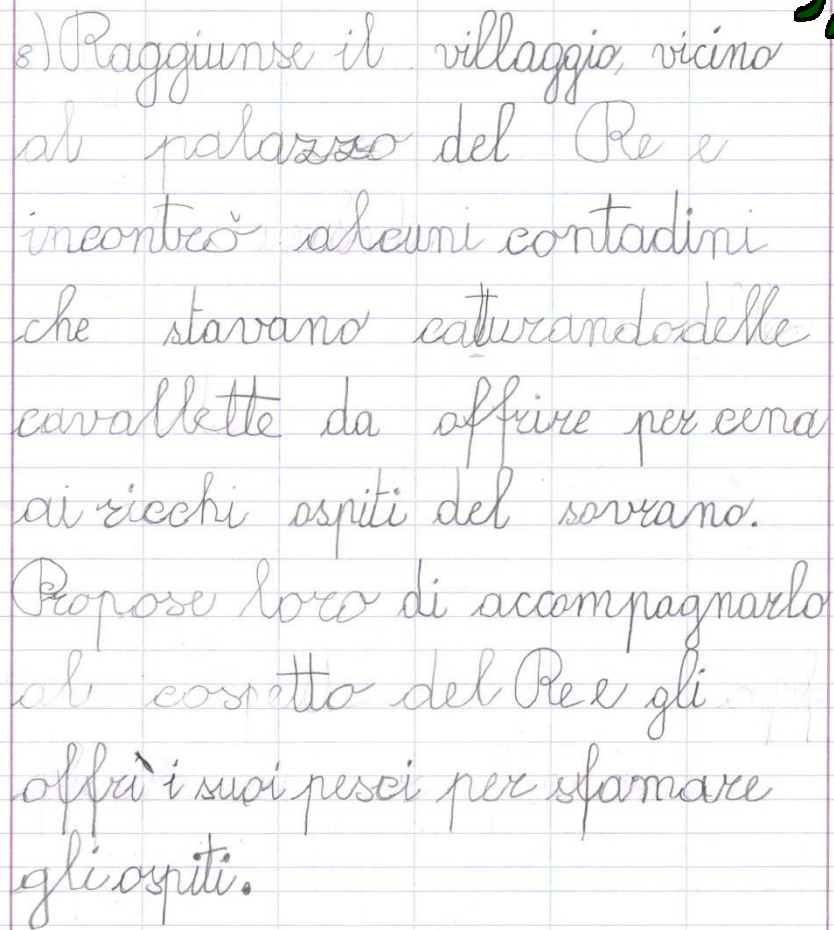 8) Raggiunse il villaggio, vicino
al palazzo del Re e
incontrò alcuni contadini
che stavano catturando delle
cavallette da offrire per cena
ai ricchi ospiti del sovrano.
Propose loro di accompagnarlo
al cospetto del Re e gli
offrì i suoi pesci per sfamare
gli ospiti.